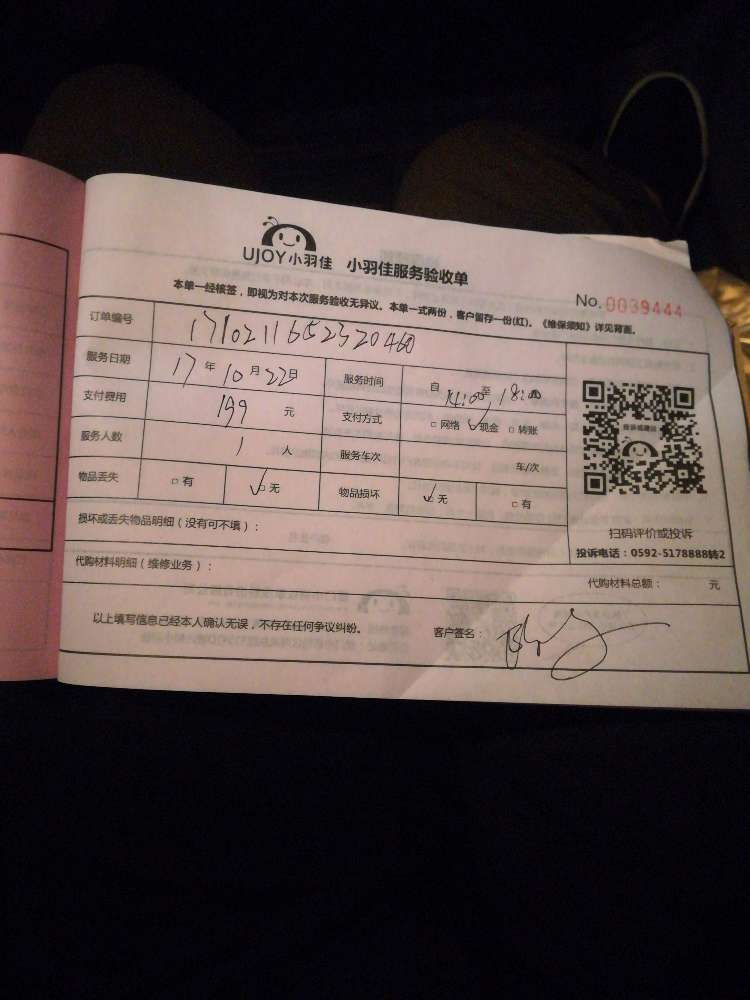 UJOY小羽佳 小羽佳服务验收单
No. 0039444
本单一经核签，即视为对本次服务验收无异议。本单一式两份，客户留存一份(红)。《维保须知》详见背面。
订单编号 1710211652320460
服务日期 17年10月22日 服务时间 自14:00至18:00
支付费用 199元 支付方式 □网络 ☑现金 □转账
服务人数 1人 服务车次 车/次
物品丢失 □有 ☑无 物品损坏 ☑无 □有
损坏或丢失物品明细（没有可不填）：
扫码评价或投诉
投诉电话：0592-5178888转2
代购材料明细（维修业务）： 代购材料总额： 元
以上填写信息已经本人确认无误，不存在任何争议纠纷。 客户签名：